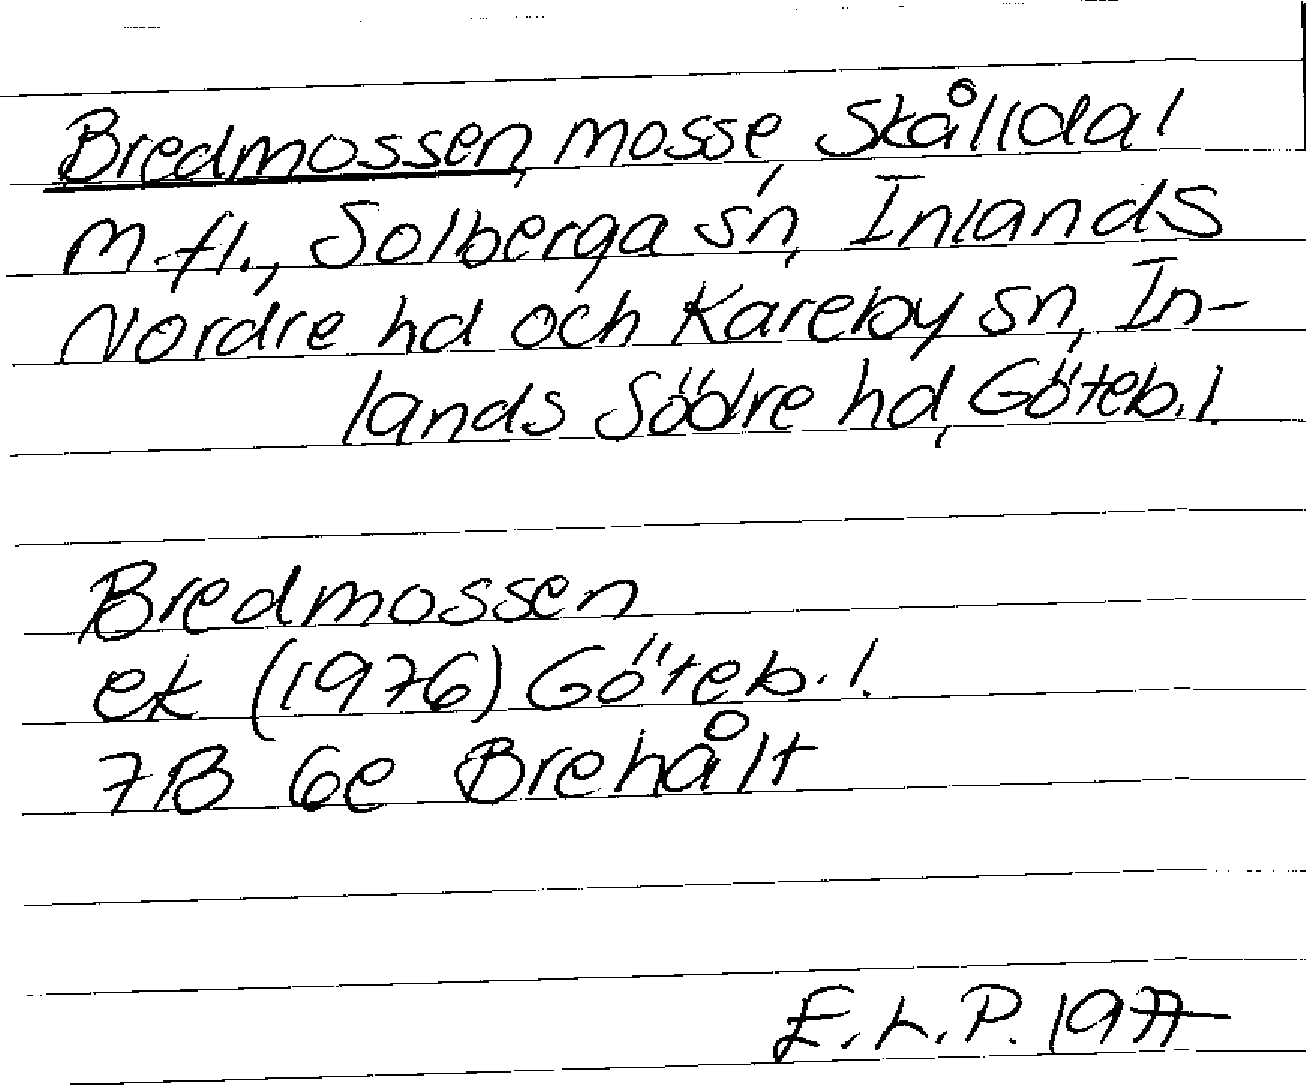 Bredmossen, mosse, Skålldal
m.fl., Solberga sn, Inlands
Nordre hd och Kareby sn, In-
lands Södre hd, Göteb.l.
Bredmossen
ek (1976) Göteb.l.
7B 6e Brehålt
E.L.P. 1977